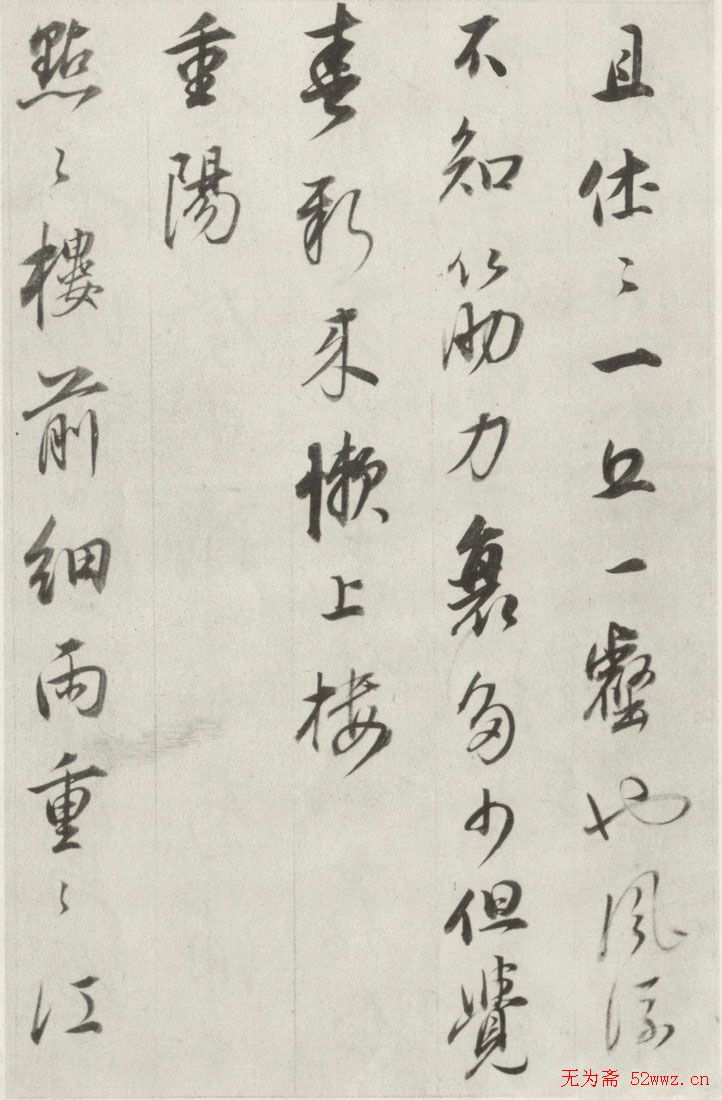 且休〻一丘一壑也風流
不知筋力衰多少但覺
春新来懶上楼
重陽
點〻樓前細雨重〻江
无为斋 52wwz.cn